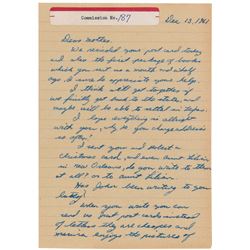 Commission No. 187
Dec 13, 1961
Dear mother
We received your post card today
and also the first package of books
which you sent us a month and a half
ago. So sure do appreciate your help.
I think we'll get together if
we finally get back to the states, and
maybe will be able to settle in Texas.
I hope everything is alright
with you, why do you change address
so often?
I sent you and Robert a
Christmas card, and even Aunt Lilian
in New Orleans, do you write to them
at all? or to aunt Lilian
Has John been writing to you
lately?
When you write you can
send us just post cards instead
of letters they are cheaper and
marina enjoys the pictures of